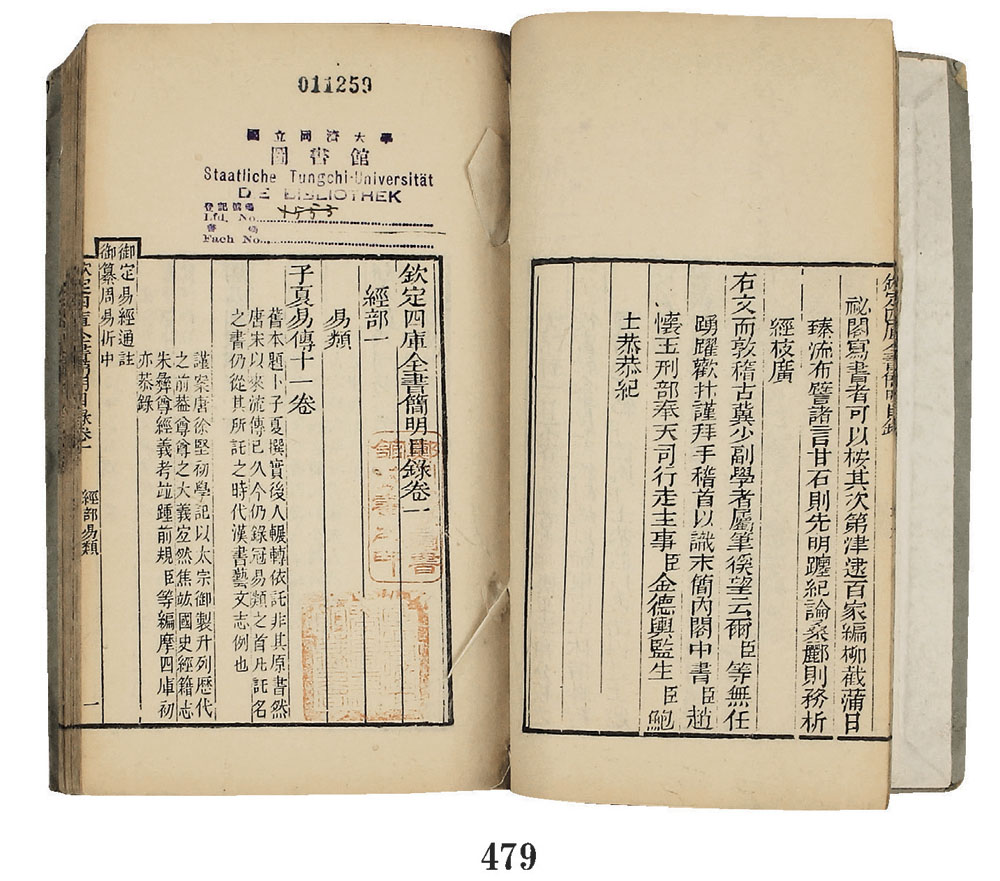 欽定四庫全書簡明目錄
祕閣寫書者可以按其次第津逮百家編柳截蒲日
臻流布譬諸言甘石則先明躔紀論桑酈則務析
經枝廣
右文而敦稽古冀少副學者屬筆徯望云爾臣等無任
踴躍歡抃謹拜手稽首以識末簡內閣中書臣趙
懷玉刑部奉天司行走主事臣金德輿監生臣鮑
士恭恭紀
011259
國立同濟大學
圖書館
Staatliche Tungchi-Universität
DE BIBLIOTHEK
登記號碼
Lfd. No. 1553
書
Fach No.
欽定四庫全書簡明目錄卷一
經部一
易類
子夏易傳十一卷
舊本題卜子夏撰實後人輾轉依託非其原書然
唐宋以來流傳已久今仍錄冠易類之首凡託名
之書仍從其所託之時代漢書藝文志例也
謹案唐徐堅初學記以太宗御製升列歷代
之前蓋尊尊之大義宏然焦竑國史經籍志
朱彝尊經義考竝踵前規臣等編摩四庫初
亦恭錄
御定易經通註
御纂周易折中
欽定四庫全書簡明目錄卷一
經部易類
一
479